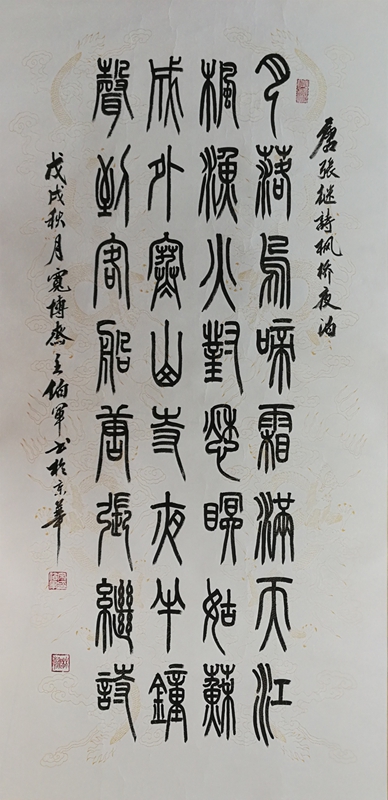 唐張継詩枫桥夜泊
月落烏啼霜滿天江
楓漁火對愁眠姑蘇
成外寒山寺夜半鐘
聲到客船唐張繼詩
戊戌秋月寬博齋主伯軍书於京華